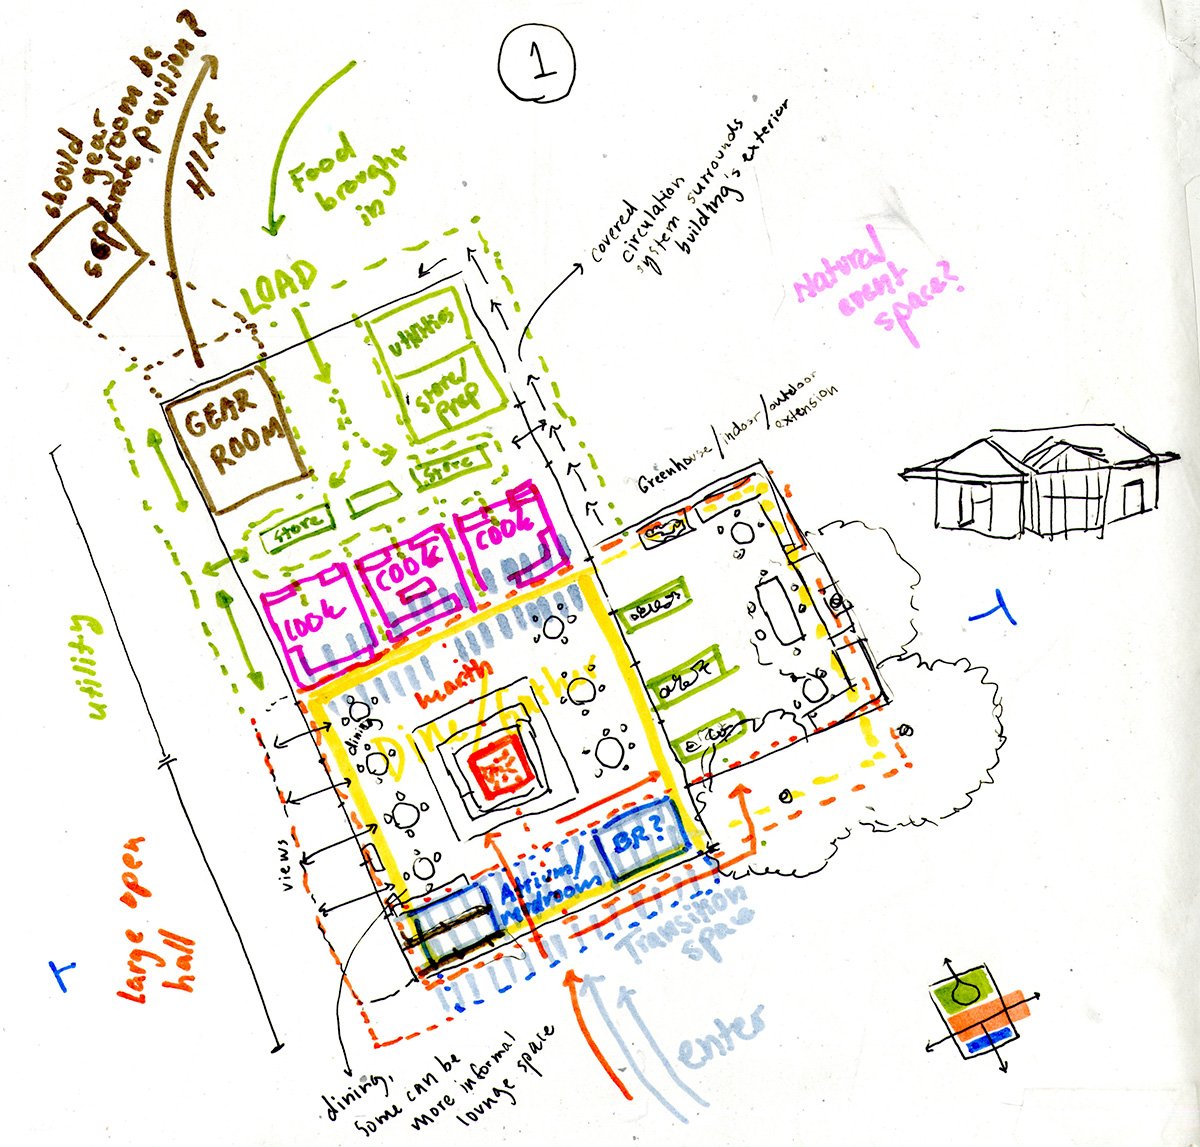 1
should
gear
room be
separate pavilion?
HIKE
Food
brought
in
LOAD
covered
circulation
system surrounds
building's exterior
Natural
event
space?
utilities
store/
prep
GEAR
ROOM
store
store
Greenhouse/indoor/outdoor
extension
COOK
COOK
COOK
utility
hearth
Dine/Gather
dining
views
BR?
Atrium/
Transition
space
Large open
hall
enter
dining,
some can be
more informal
lounge space